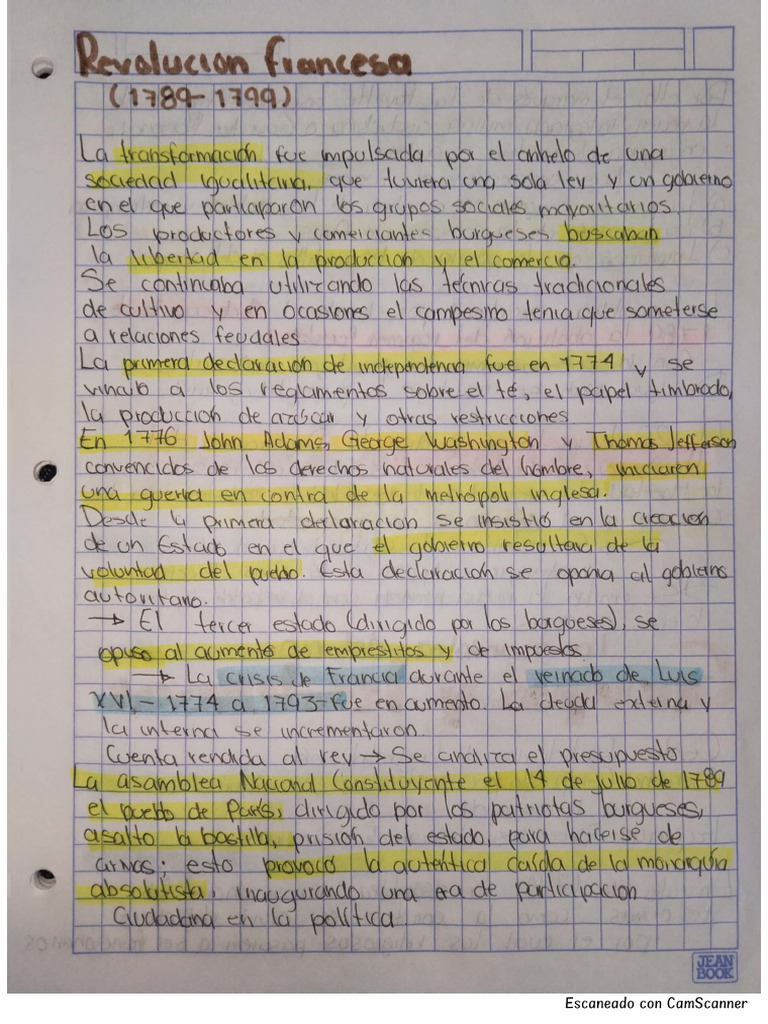 Revolucion francesa
(1789-1799)
La transformación fue impulsada por el anhelo de una
sociedad igualitaria, que tuviera una sola ley y un gobierno
en el que participaron los grupos sociales mayoritarios.
Los productores y comerciantes burgueses buscaban
la libertad en la produccion y el comercio.
Se continuaba utilizando las técnicas tradicionales
de cultivo y en ocasiones el campesino tenia que someterse
a relaciones feudales
La primera declaración de independencia fue en 1774 y se
vinculo a los reglamentos sobre el té, el papel timbrado,
la produccion de azúcar y otras restricciones
En 1776 John Adams, George Washington y Thomas Jefferson
convencidos de los derechos naturales del hombre, iniciaron
una guerra en contra de la metrópoli inglesa.
Desde la primera declaracion se insistió en la creacion
de un Estado en el que el gobierno resultara de la
voluntad del pueblo. Esta declaración se oponia al gobierno
autoritario.
→ El tercer estado (dirigido por los burgueses), se
opuso al aumento de emprestitos y de impuestos
→ La crisis de Francia durante el reinado de Luis
XVI - 1774 a 1793 - fue en aumento. La deuda externa y
la interna se incrementaron.
Cuenta rendida al rey → Se analiza el presupuesto
La asamblea Nacional Constituyente el 14 de julio de 1789
el pueblo de París, dirigido por los patriotas burgueses,
asalto la bastilla, prisión del estado, para hacerse de
armas; esto provocó la auténtica caída de la monarquía
absolutista, inaugurando una era de participacion
Ciudadana en la política.
JEAN
BOOK
Escaneado con CamScanner